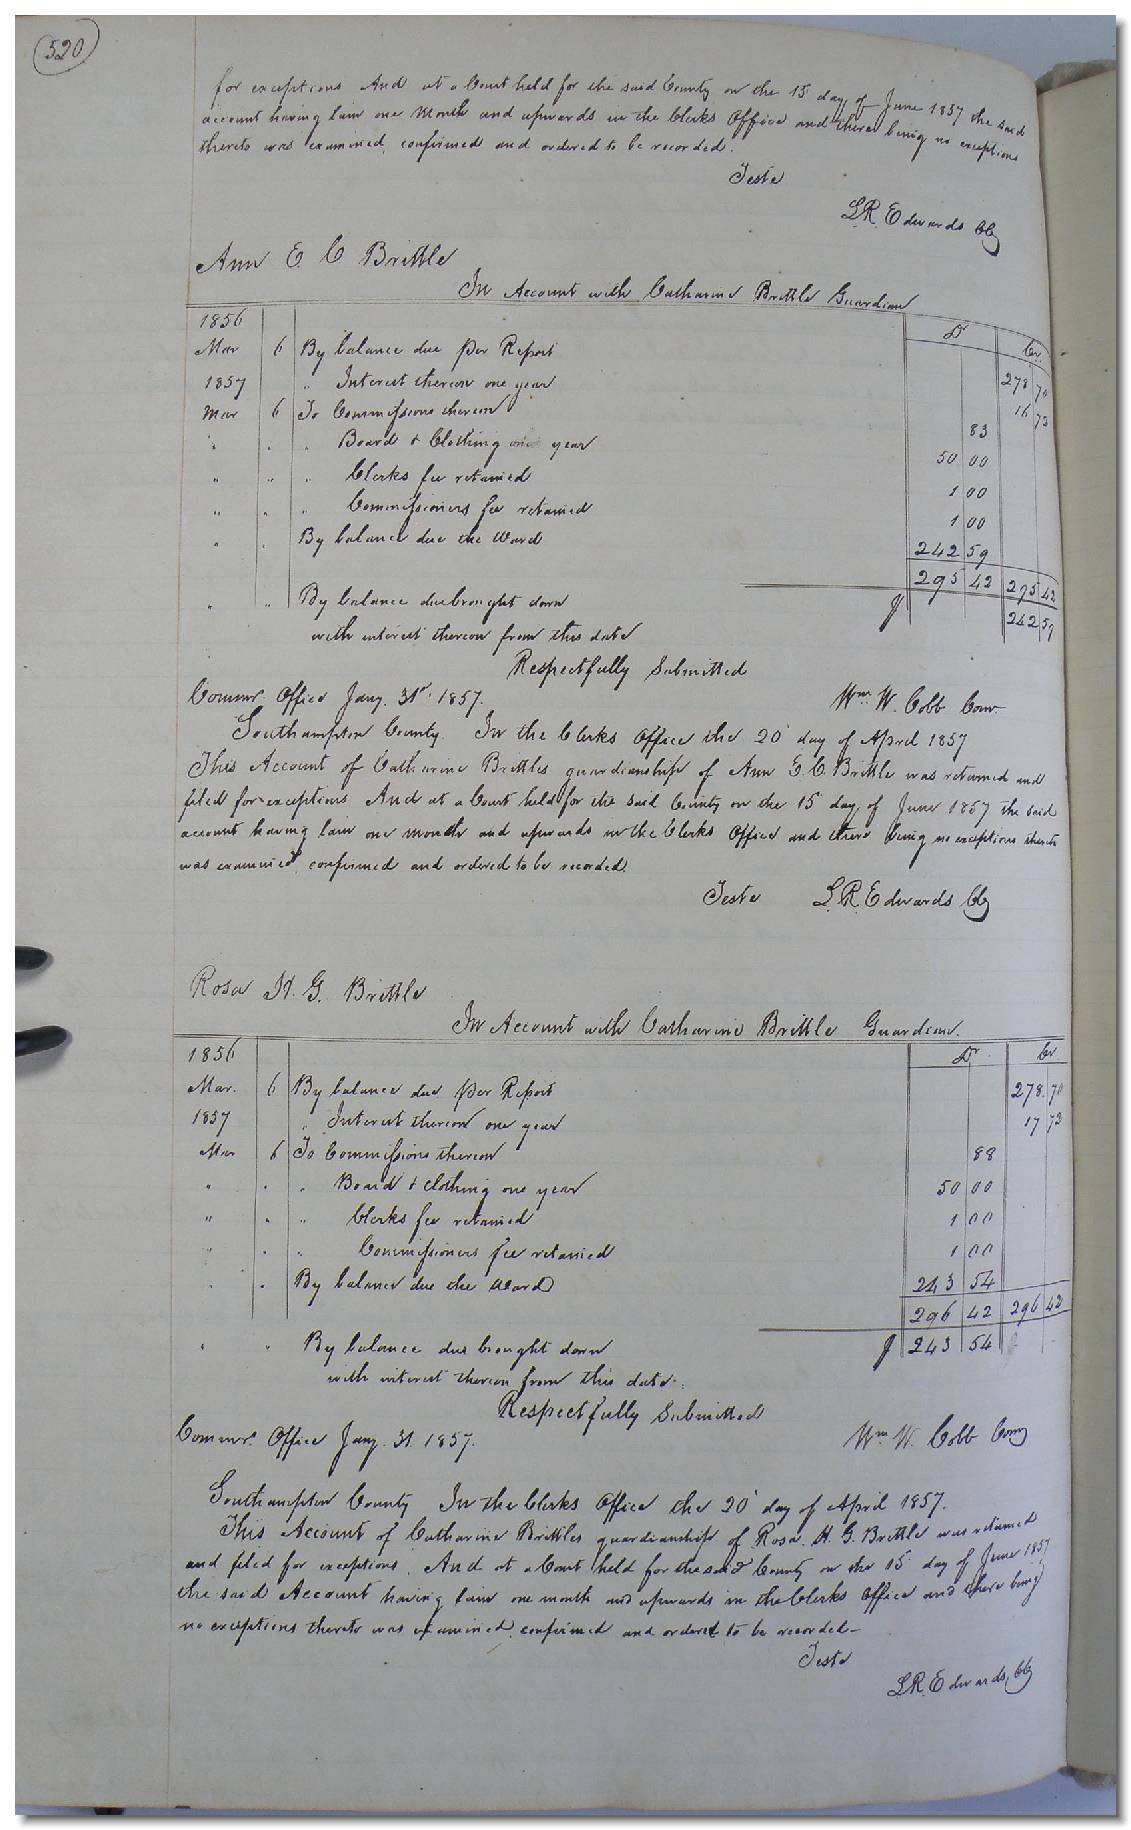 520
for exceptions And at a Court held for the said County on the 15 day of June 1857 the said
account having lain one Month and upwards in the Clerks Office and there being no exceptions
thereto was examined, confirmed and ordered to be recorded.
Teste
L.R. Edwards Clk
Ann E. C Brittle
In Account with Catharine Brittle Guardian
1856 Dr Cr.
Mar 6 By balance due per Report 278 70
1857 " Interest thereon one year 16 72
Mar 6 To Commissions thereon 83
" " " Board & Clothing one year 50 00
" " " Clerks fee retained 1 00
" " " Commissioners fee retained 1 00
" " By balance due the Ward 242 59
295 42 295 42
" " By balance due brought down $ 242 59
with interest thereon from this date
Respectfully Submitted
Commr Office Jany. 31st 1857. Wm W. Cobb Comr
Southampton County. In the Clerks Office the 20 day of April 1857
This Account of Catharine Brittles guardianship of Ann E. C. Brittle was returned and
filed for exceptions And at a Court held for the said County on the 15 day of June 1857 the said
account having lain one month and upwards in the Clerks Office and there being no exceptions thereto
was examined, confirmed and ordered to be recorded.
Teste L.R. Edwards Clk
Rosa H. G. Brittle
In Account with Catharine Brittle Guardian.
1856 Dr Cr
Mar. 6 By balance due per Report 278 70
1857 " Interest thereon one year 17 72
Mar 6 To Commissions thereon 88
" " " Board & clothing one year 50 00
" " " Clerks fee retained 1 00
" " " Commissioners fee retained 1 00
" " By balance due the Ward 243 54
296 42 296 42
" " By balance due brought down $ 243 54
with interest thereon from this date.
Respectfully Submitted
Commr. Office Jany. 31 1857. Wm W. Cobb Comr
Southampton County In the Clerks Office the 20 day of April 1857.
This Account of Catharine Brittles guardianship of Rosa. H. G. Brittle was returned
and filed for exceptions. And at a Court held for the said County on the 15 day of June 1857
the said Account having lain one month and upwards in the Clerks Office and there being
no exceptions thereto was examined, confirmed and ordered to be recorded—
Teste
L.R. Edwards, Clk